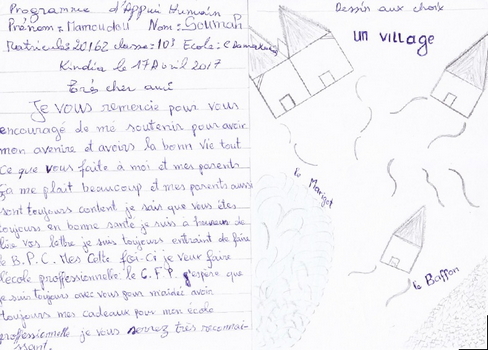 Programme d'Appui Humain
Prénom = Mamoudou Nom = Soumah
Matricule: 20162 classe = 10è Ecole:
Kindia le 17 Avril 2017
Très cher ami
Je vous remercie pour vous
encourage de me soutenir pour avoir
mon avenire et avoirs la bonn vie tout
ce que vous faite à moi et mes parents
ça me plait beaucoup et mes parents aussi
sont toujours content je sais que vous êtes
toujours en bonne santé je suis a
lire vos lettre je suis toujours entraint de faire
le B.P.C. Mes Cette foi-Ci je veux faire
l'école proffessionnelle le C.F.P. j'éspère que
je suis toujours avec vous pour avoir
toujours mes cadeaux pour mon école
proffessionnelle je vous serrez très reconnai-
ssant.
Dessin aux choix
un village
le Marigot
le Baffon